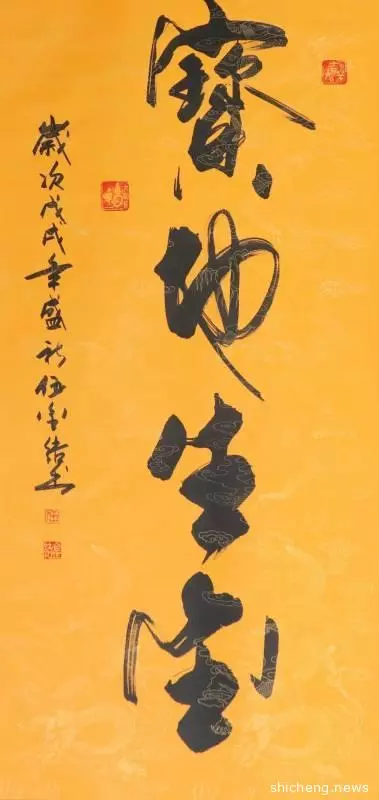 寶地生金
歲次戊戌年盛秋伍書
shicheng.news